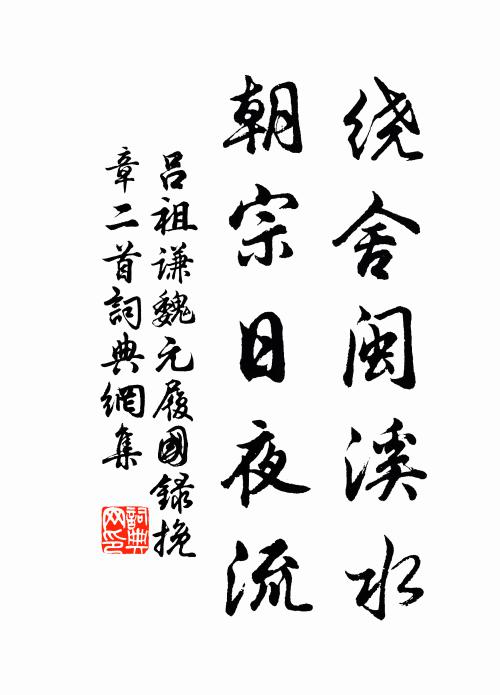 绕舍闽溪水
朝宗日夜流
吕祖谦魏元履国录挽
章二首词典網集
詞典
网印